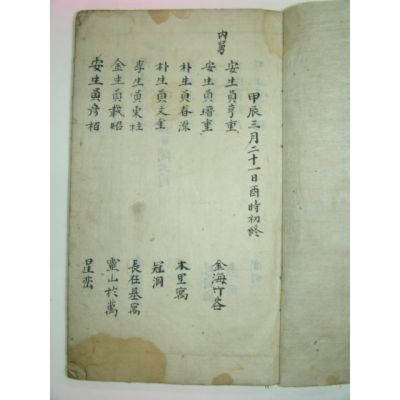 甲辰三月二十一日酉時初終
內弔
安生員亨重
安生員瑨重 金海竹谷
朴生員春源 本里寓
朴生員文圭 冠洞
李生員東柱 長在基寓
金生員載昭 靈山於萬
安生員彦栢 星巒